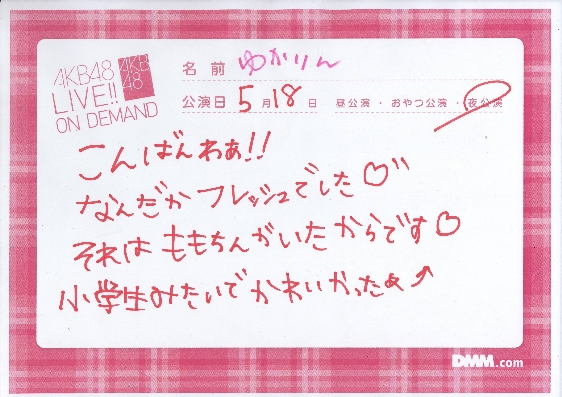 AKB48
LIVE!!
ON DEMAND
AKB
48
名前 ゆかりん
公演日 5月18日 昼公演・おやつ公演・夜公演
こんばんわぁ!!
なんだかフレッシュでした♡
それはももちんがいたからです♡
小学生みたいでかわいかったぁ↗
DMM.com